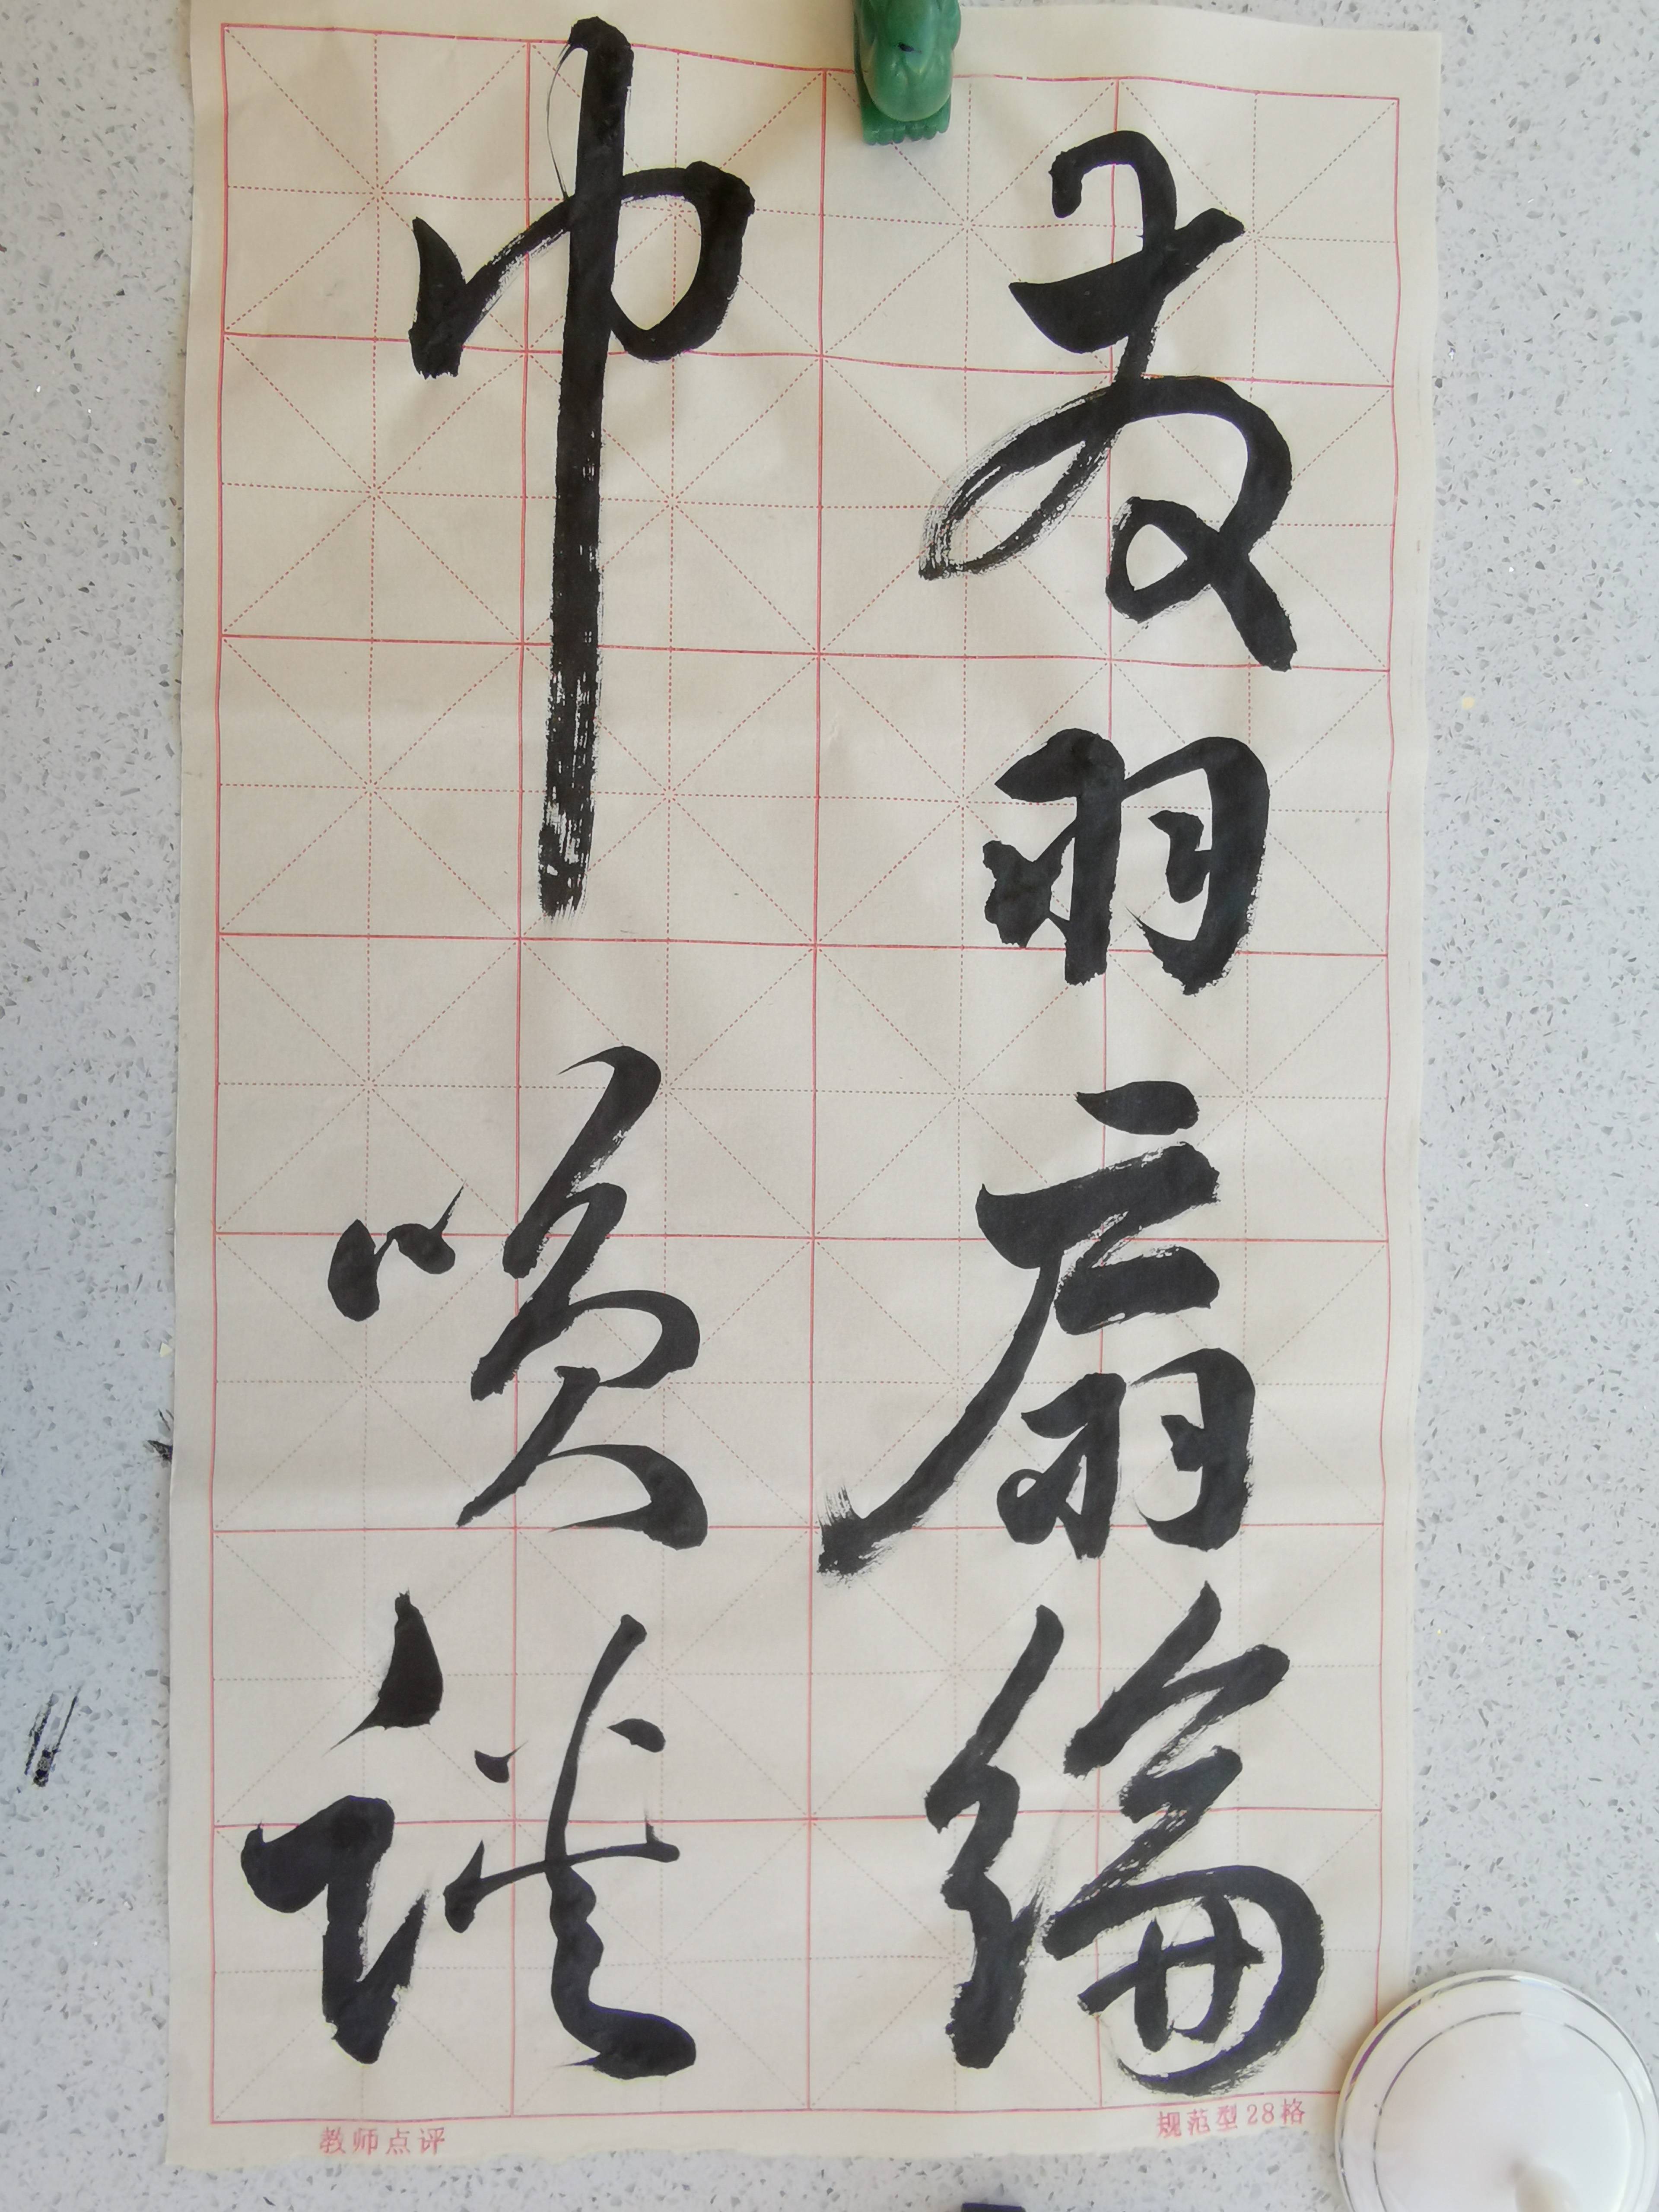 发羽扇綸
巾笑談
规范型28格
教师点评